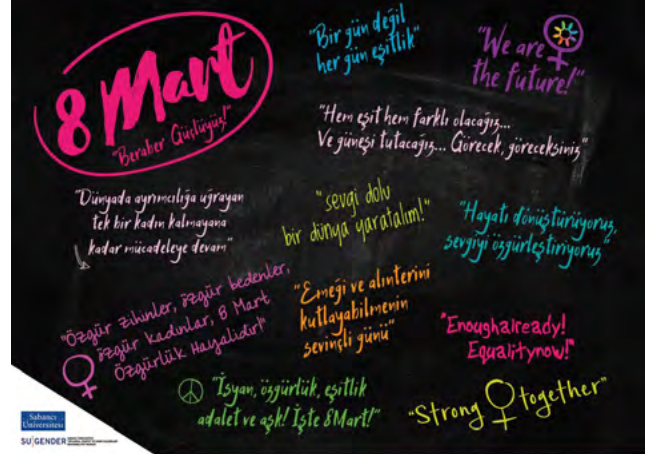 8 Mart
"Beraber Güçlüyüz!"
"Bir gün değil
her gün eşitlik"
"We are
the future!"
"Hem eşit hem farklı olacağız...
Ve güneşi tutacağız... Görecek, göreceksiniz"
"Dünyada ayrımcılığa uğrayan
tek bir kadın kalmayana
kadar mücadeleye devam"
"sevgi dolu
bir dünya yaratalım!"
"Hayatı dönüştürüyoruz,
sevgiyi özgürleştiriyoruz"
"Özgür zihinler, özgür bedenler,
özgür kadınlar, 8 Mart
Özgürlük Hayalidir!"
"Emeği ve alınterini
kutlayabilmenin
sevinçli günü"
"Enoughalready!
Equalitynow!"
"İsyan, özgürlük, eşitlik
adalet ve aşk! İşte 8Mart!"
"Strong together"
Sabancı
Üniversitesi
SU GENDER